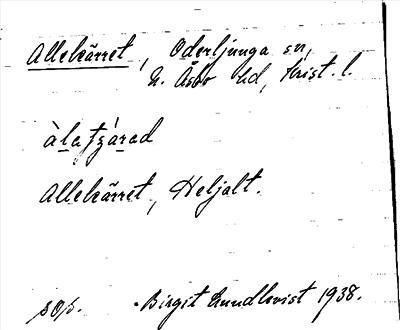 Allekärret, Oderljunga sn,
N. Åsbo hd, Krist. l.
Allekärret, Heljalt.
sop. Birgit Lundkvist 1938.